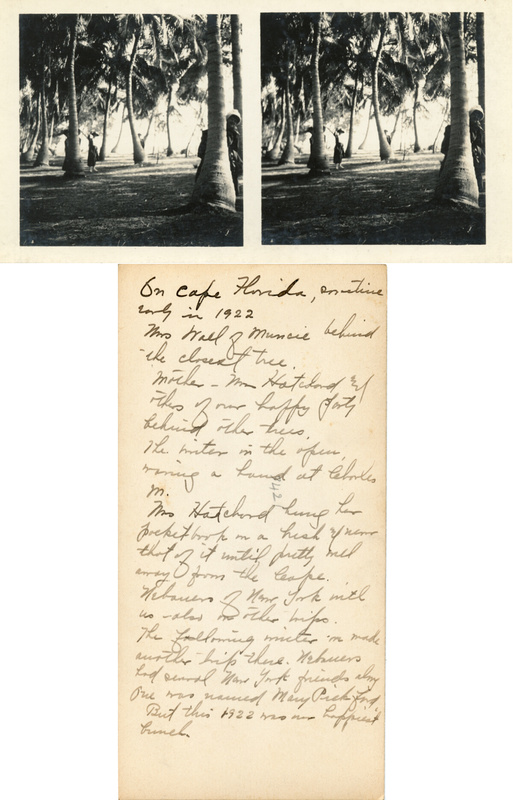 On Cape Florida, sometime
early in 1922
Mrs Wall of Muncie behind
the closest tree.
Mother - Mrs Hatchord &
others of our happy party
behind other trees.
The writer in the open,
waving a hand at Charles
M.
Mrs Hatchord hung her
pocketbook on a bush & never
thot of it until pretty well
away from the Cape.
of New York with
us - also on other trips.
The following winter we made
another trip there.
had several New York friends along
One was named Mary Pickford
But this 1922 was our happiest
bunch
42